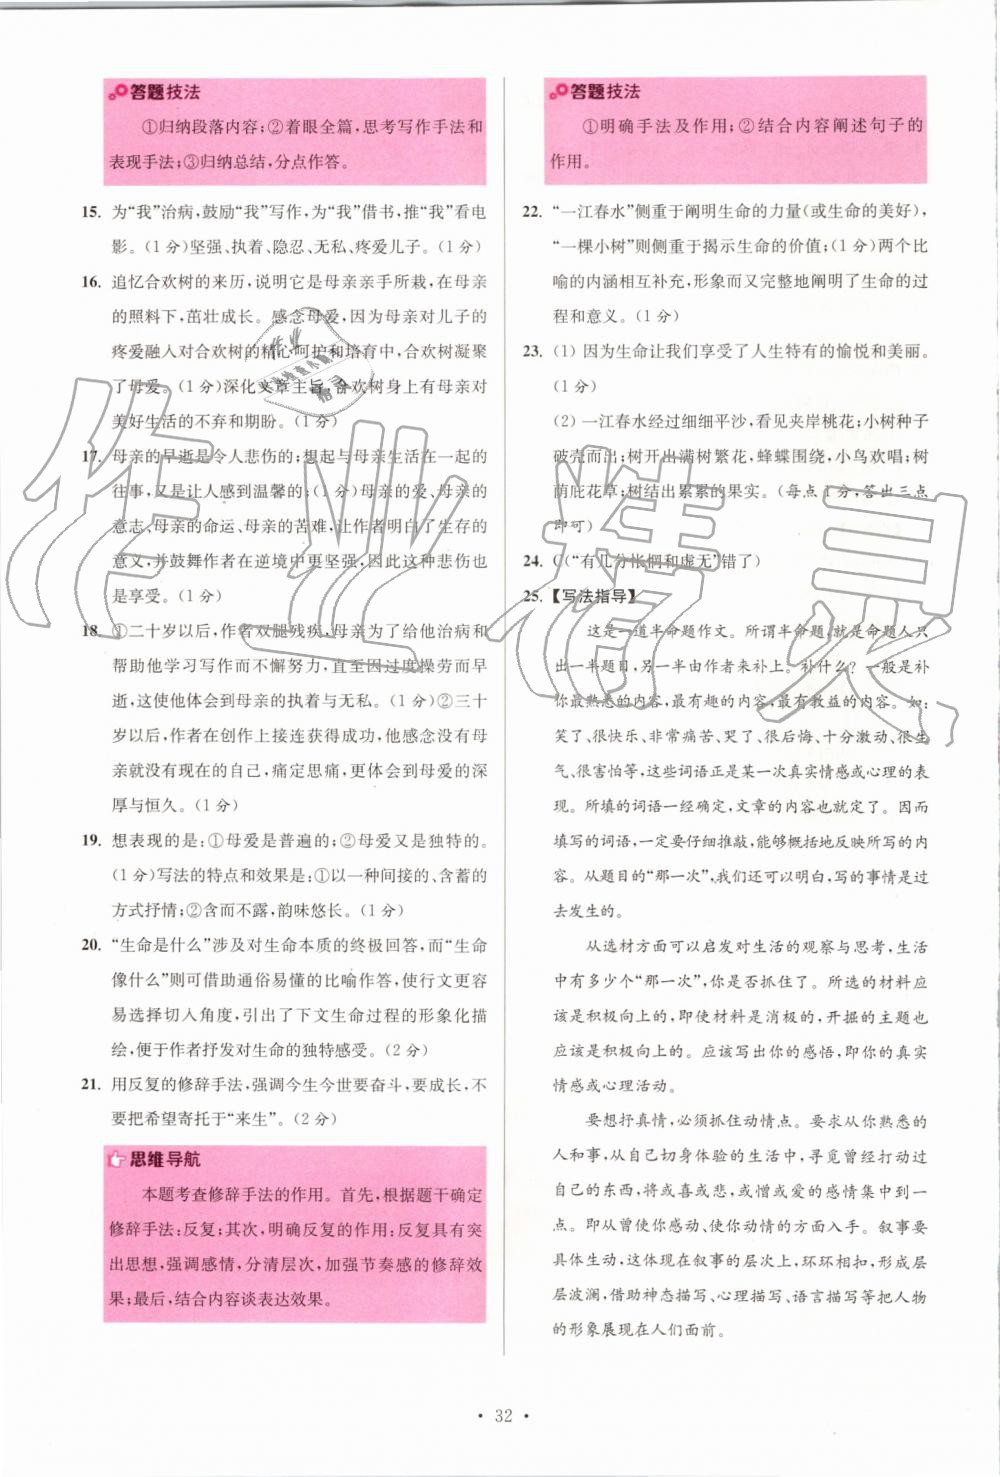 答题技法
①归纳段落内容;②着眼全篇,思考写作手法和
表现手法;③归纳总结,分点作答。
15. 为“我”治病,鼓励“我”写作,为“我”借书,推“我”看电
影。(1分)坚强、执着、隐忍、无私、疼爱儿子。(1分)
16. 追忆合欢树的来历,说明它是母亲亲手所栽,在母亲
的照料下,茁壮成长。感念母爱,因为母亲对儿子的
疼爱融入对合欢树的精心呵护和培育中,合欢树凝聚
了母爱。(1分)深化文章主旨,合欢树身上有母亲对
美好生活的不弃和期盼。(1分)
17. 母亲的早逝是令人悲伤的;想起与母亲生活在一起的
往事,又是让人感到温馨的;(1分)母亲的爱、母亲的
意志、母亲的命运、母亲的苦难,让作者明白了生存的
意义,并鼓舞作者在逆境中更坚强,因此这种悲伤也
是享受。(1分)
18. ①二十岁以后,作者双腿残疾,母亲为了给他治病和
帮助他学习写作而不懈努力,直至因过度操劳而早
逝,这使他体会到母亲的执着与无私。(1分)②三十
岁以后,作者在创作上接连获得成功,他感念没有母
亲就没有现在的自己,痛定思痛,更体会到母爱的深
厚与恒久。(1分)
19. 想表现的是:①母爱是普遍的;②母爱又是独特的。
(1分)写法的特点和效果是:①以一种间接的、含蓄的
方式抒情;②含而不露,韵味悠长。(1分)
20. “生命是什么”涉及对生命本质的终极回答,而“生命
像什么”则可借助通俗易懂的比喻作答,使行文更容
易选择切入角度,引出了下文生命过程的形象化描
绘,便于作者抒发对生命的独特感受。(2分)
21. 用反复的修辞手法,强调今生今世要奋斗,要成长,不
要把希望寄托于“来生”。(2分)
思维导航
本题考查修辞手法的作用。首先,根据题干确定
修辞手法:反复;其次,明确反复的作用:反复具有突
出思想,强调感情,分清层次,加强节奏感的修辞效
果;最后,结合内容谈表达效果。
答题技法
①明确手法及作用;②结合内容阐述句子的
作用。
22. “一江春水”侧重于阐明生命的力量(或生命的美好),
“一棵小树”则侧重于揭示生命的价值;(1分)两个比
喻的内涵相互补充,形象而又完整地阐明了生命的过
程和意义。(1分)
23. (1) 因为生命让我们享受了人生特有的愉悦和美丽。
(1分)
(2) 一江春水经过细细平沙,看见夹岸桃花;小树种子
破壳而出;树开出满树繁花,蜂蝶围绕,小鸟欢唱;树
荫庇花草;树结出累累的果实。(每点1分,答出三点
即可)
24. C(“有几分怅惘和虚无”错了)
25. 【写法指导】
这是一道半命题作文。所谓半命题,就是命题人只
出一半题目,另一半由作者来补上。补什么?一般是补
你最熟悉的内容,最有趣的内容,最有教益的内容。如:
笑了、很快乐、非常痛苦、哭了、很后悔、十分激动、很生
气、很害怕等,这些词语正是某一次真实情感或心理的表
现。所填的词语一经确定,文章的内容也就定了。因而
填写的词语,一定要仔细推敲,能够概括地反映所写的内
容。从题目的“那一次”,我们还可以明白,写的事情是过
去发生的。
从选材方面可以启发对生活的观察与思考,生活
中有多少个“那一次”,你是否抓住了。所选的材料应
该是积极向上的,即使材料是消极的,开掘的主题也
应该是积极向上的。应该写出你的感悟,即你的真实
情感或心理活动。
要想抒真情,必须抓住动情点。要求从你熟悉的
人和事,从自己切身体验的生活中,寻觅曾经打动过
自己的东西,将或喜或悲,或憎或爱的感情集中到一
点。即从曾使你感动、使你动情的方面入手。叙事要
具体生动,这体现在叙事的层次上,环环相扣,层层
层波澜,借助神态描写、心理描写、语言描写等把人物
的形象展现在人们面前。
• 32 •
作业精灵